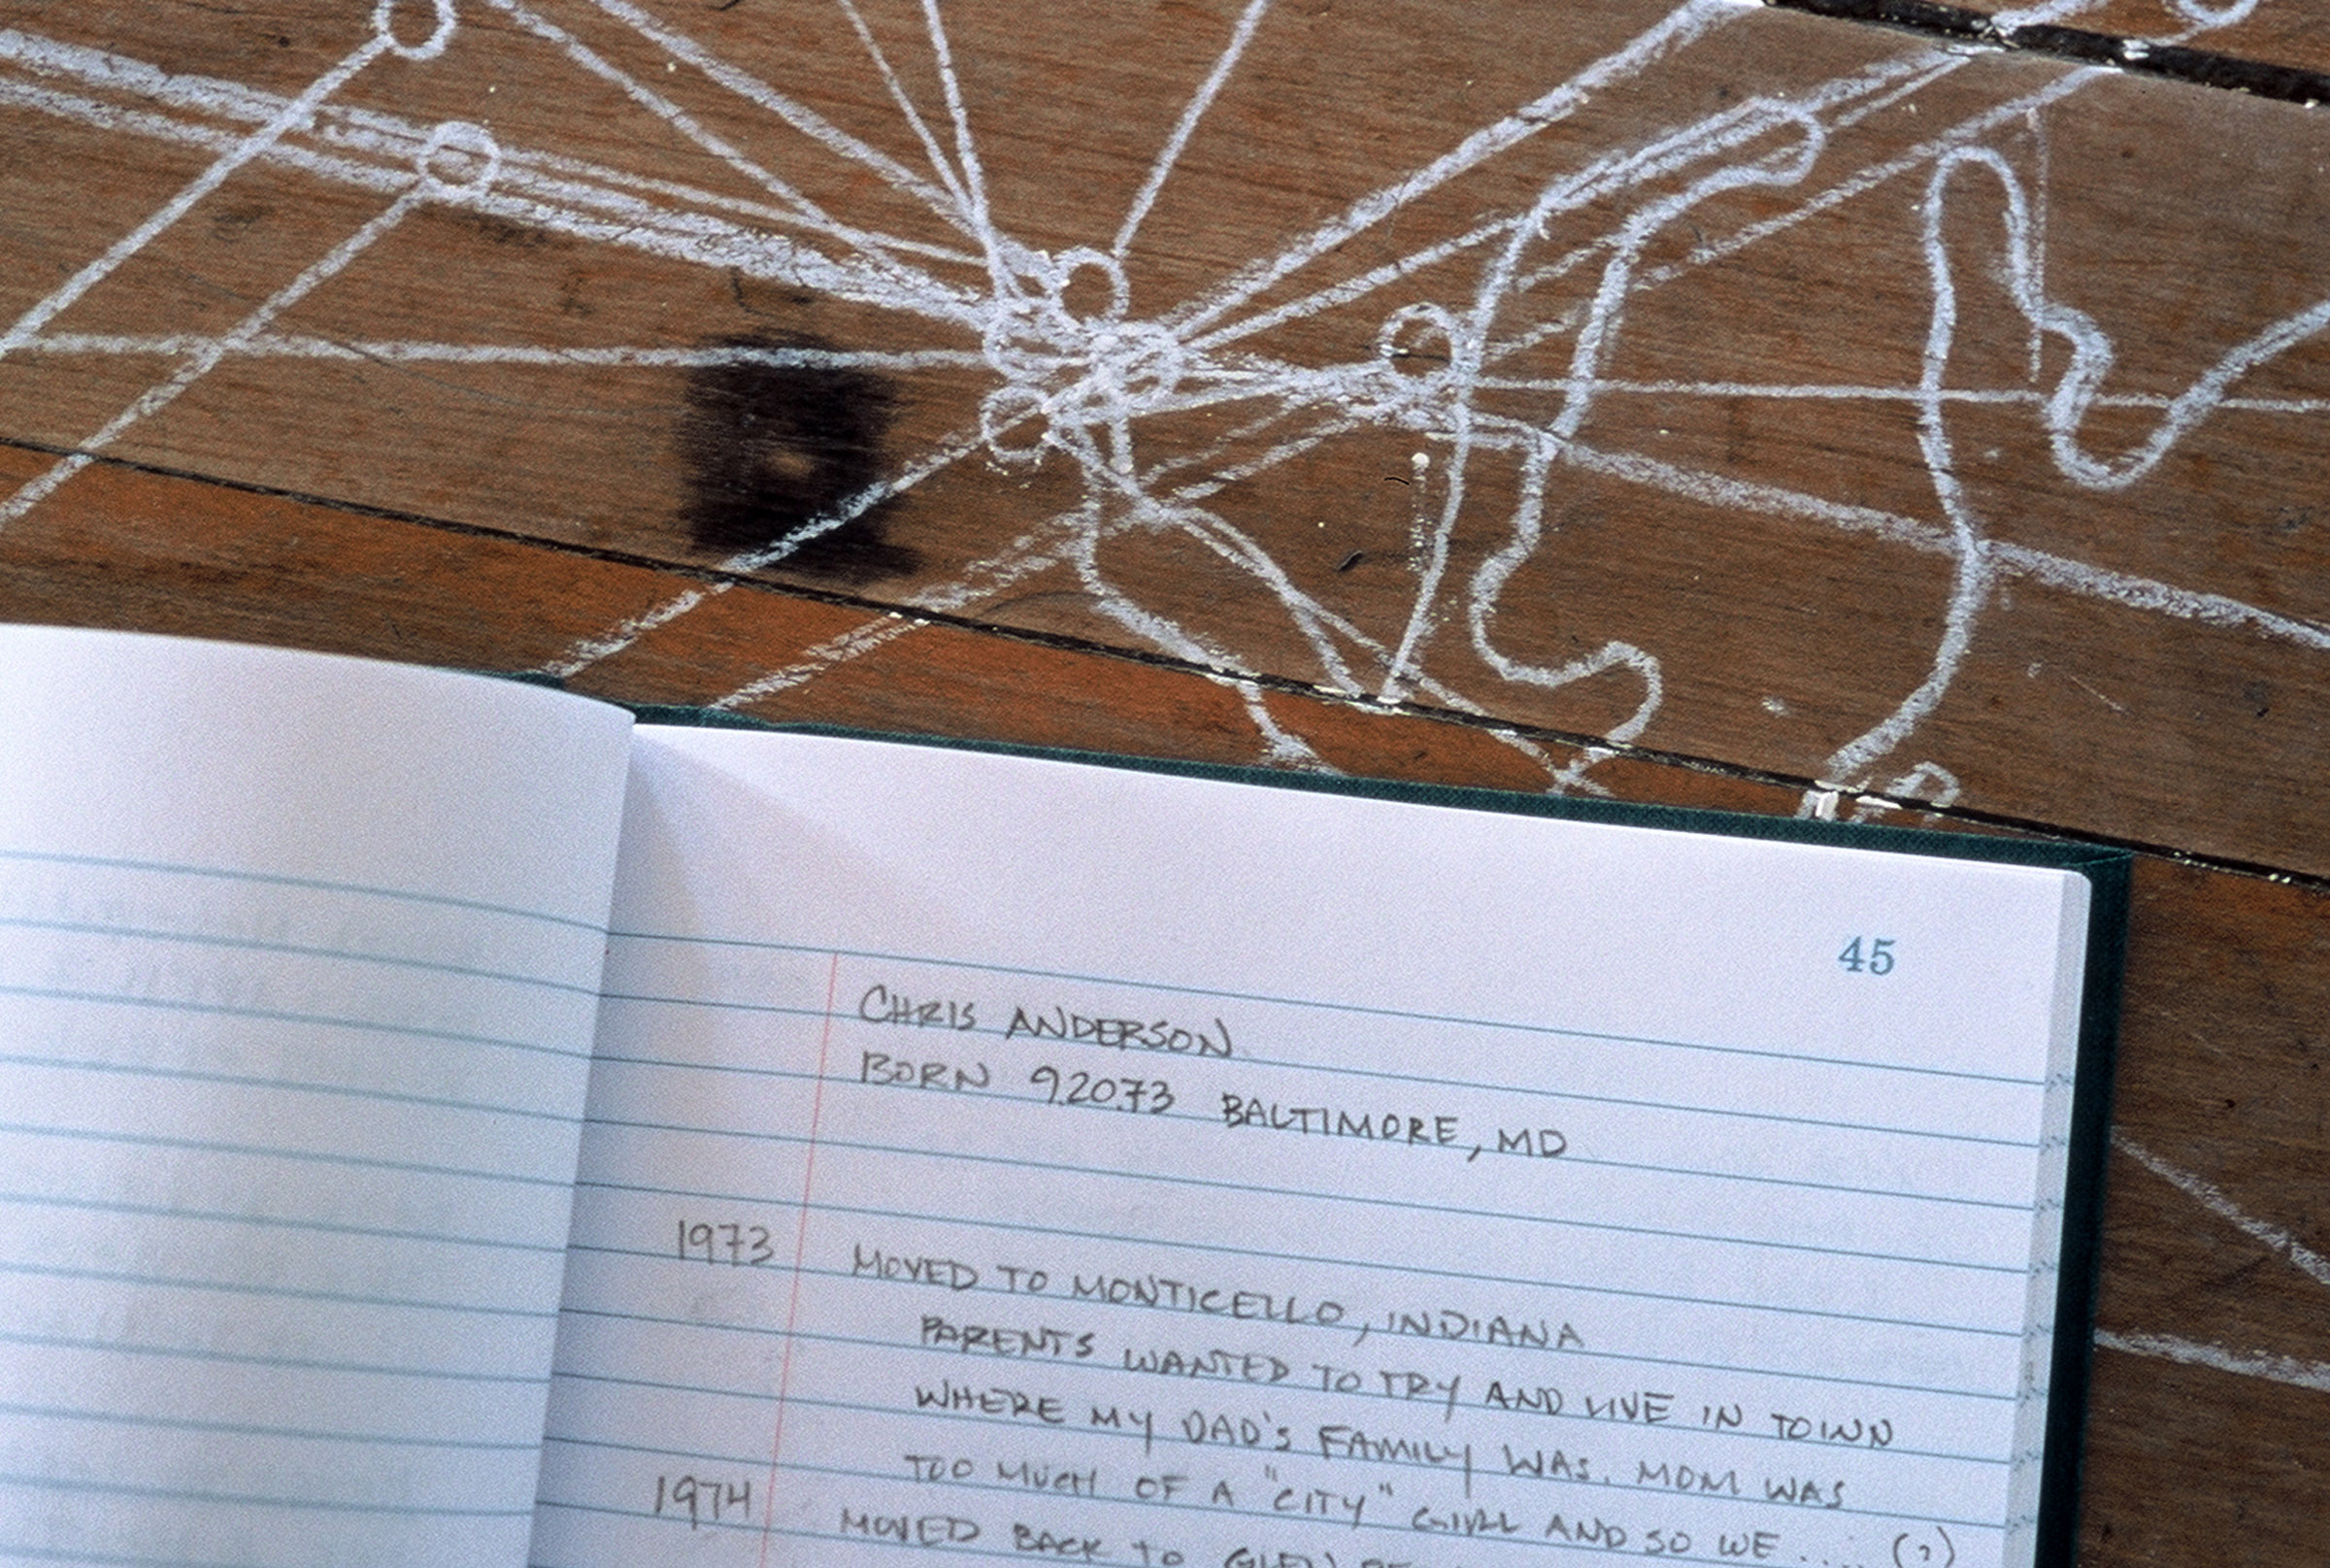 45
CHRIS ANDERSON
BORN 9.20.73 BALTIMORE, MD
1973 MOVED TO MONTICELLO, INDIANA
PARENTS WANTED TO TRY AND LIVE IN TOWN
WHERE MY DAD'S FAMILY WAS. MOM WAS
TOO MUCH OF A "CITY" GIRL AND SO WE .... (?)
1974 MOVED BACK TO GLEN